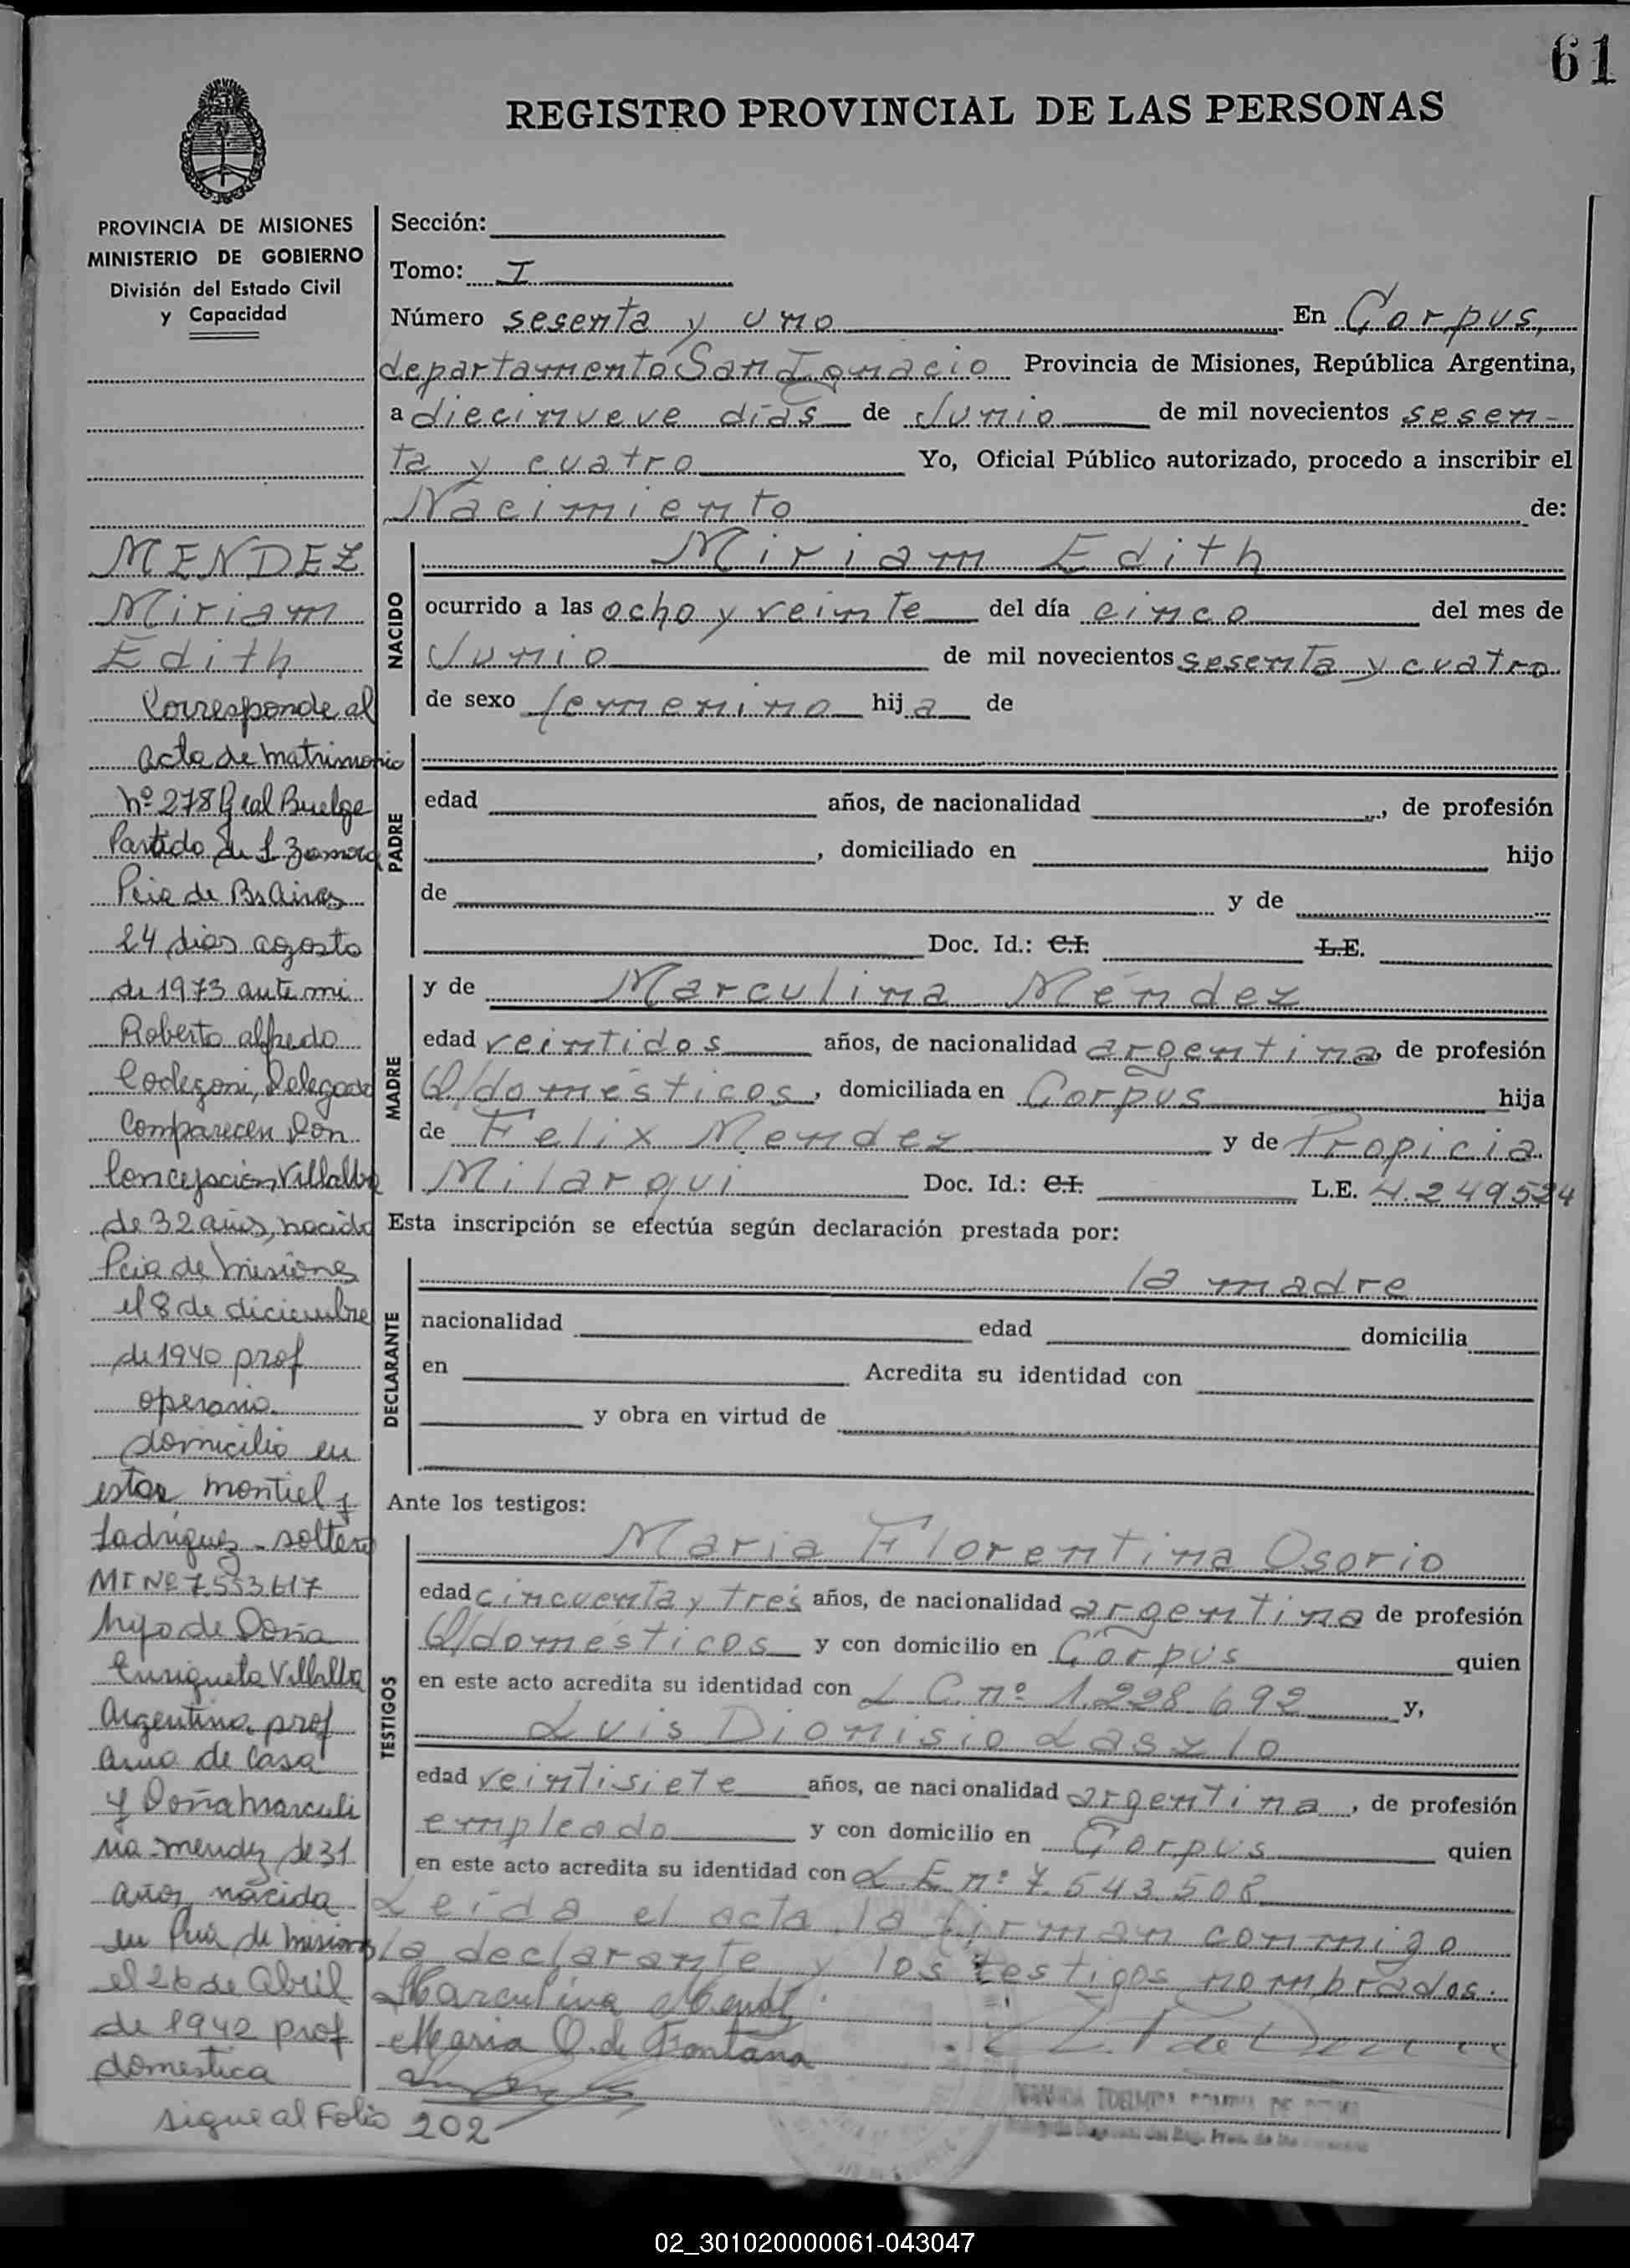 61
REGISTRO PROVINCIAL DE LAS PERSONAS
PROVINCIA DE MISIONES
MINISTERIO DE GOBIERNO
División del Estado Civil
y Capacidad
MENDEZ
Miriam
Edith
Corresponde al
acta de matrimonio
nº 278 Gral Buelge
Partido de L. Zamora
Pcia de Bs Aires
24 dias agosto
de 1973 ante mi
Roberto alfredo
Codegoni, Delegado
Comparecen Don
Concepcion Villalba
de 32 años, nacido
Pcia de misiones
el 8 de diciembre
de 1940 prof
operario
domicilio en
estar montiel y
Ladriguez - soltero
MI Nº 7.553.617
hijo de Doña
Enriqueta Villalba
Argentina, prof
ama de casa
y Doña Marculi
na mendez de 31
años, nacida
en Pcia de misiones
el 26 de Abril
de 1942 prof
domestica
sigue al Folio 202
Sección:
Tomo: I
Número sesenta y uno En Corpus,
departamento San Ignacio Provincia de Misiones, República Argentina,
a diecinueve días de Junio de mil novecientos sesen-
ta y cuatro Yo, Oficial Público autorizado, procedo a inscribir el
Nacimiento de:
NACIDO
Miriam Edith
ocurrido a las ocho y veinte del día cinco del mes de
Junio de mil novecientos sesenta y cuatro
de sexo femenino hija de
PADRE
edad años, de nacionalidad , de profesión
, domiciliado en hijo
de y de
Doc. Id.: C.I. L.E.
MADRE
y de Marculina Méndez
edad veintidos años, de nacionalidad argentina, de profesión
Q/domésticos, domiciliada en Corpus hija
de Felix Mendez y de Propicia
Milarqui Doc. Id.: C.I. L.E. 4.249524
Esta inscripción se efectúa según declaración prestada por:
DECLARANTE
la madre
nacionalidad edad domicilia
en Acredita su identidad con
y obra en virtud de
Ante los testigos:
TESTIGOS
Maria Florentina Osorio
edad cincuenta y tres años, de nacionalidad argentina de profesión
Q/domésticos y con domicilio en Corpus quien
en este acto acredita su identidad con L C. nº 1.228.692 y,
Luis Dionisio Laszlo
edad veintisiete años, de nacionalidad argentina, de profesión
empleado y con domicilio en Corpus quien
en este acto acredita su identidad con L.E nº 7.543.508
Leída el acta la firman conmigo
la declarante y los testigos nombrados.
Marculina Mendez
Maria O. de Fontana
02_301020000061-043047